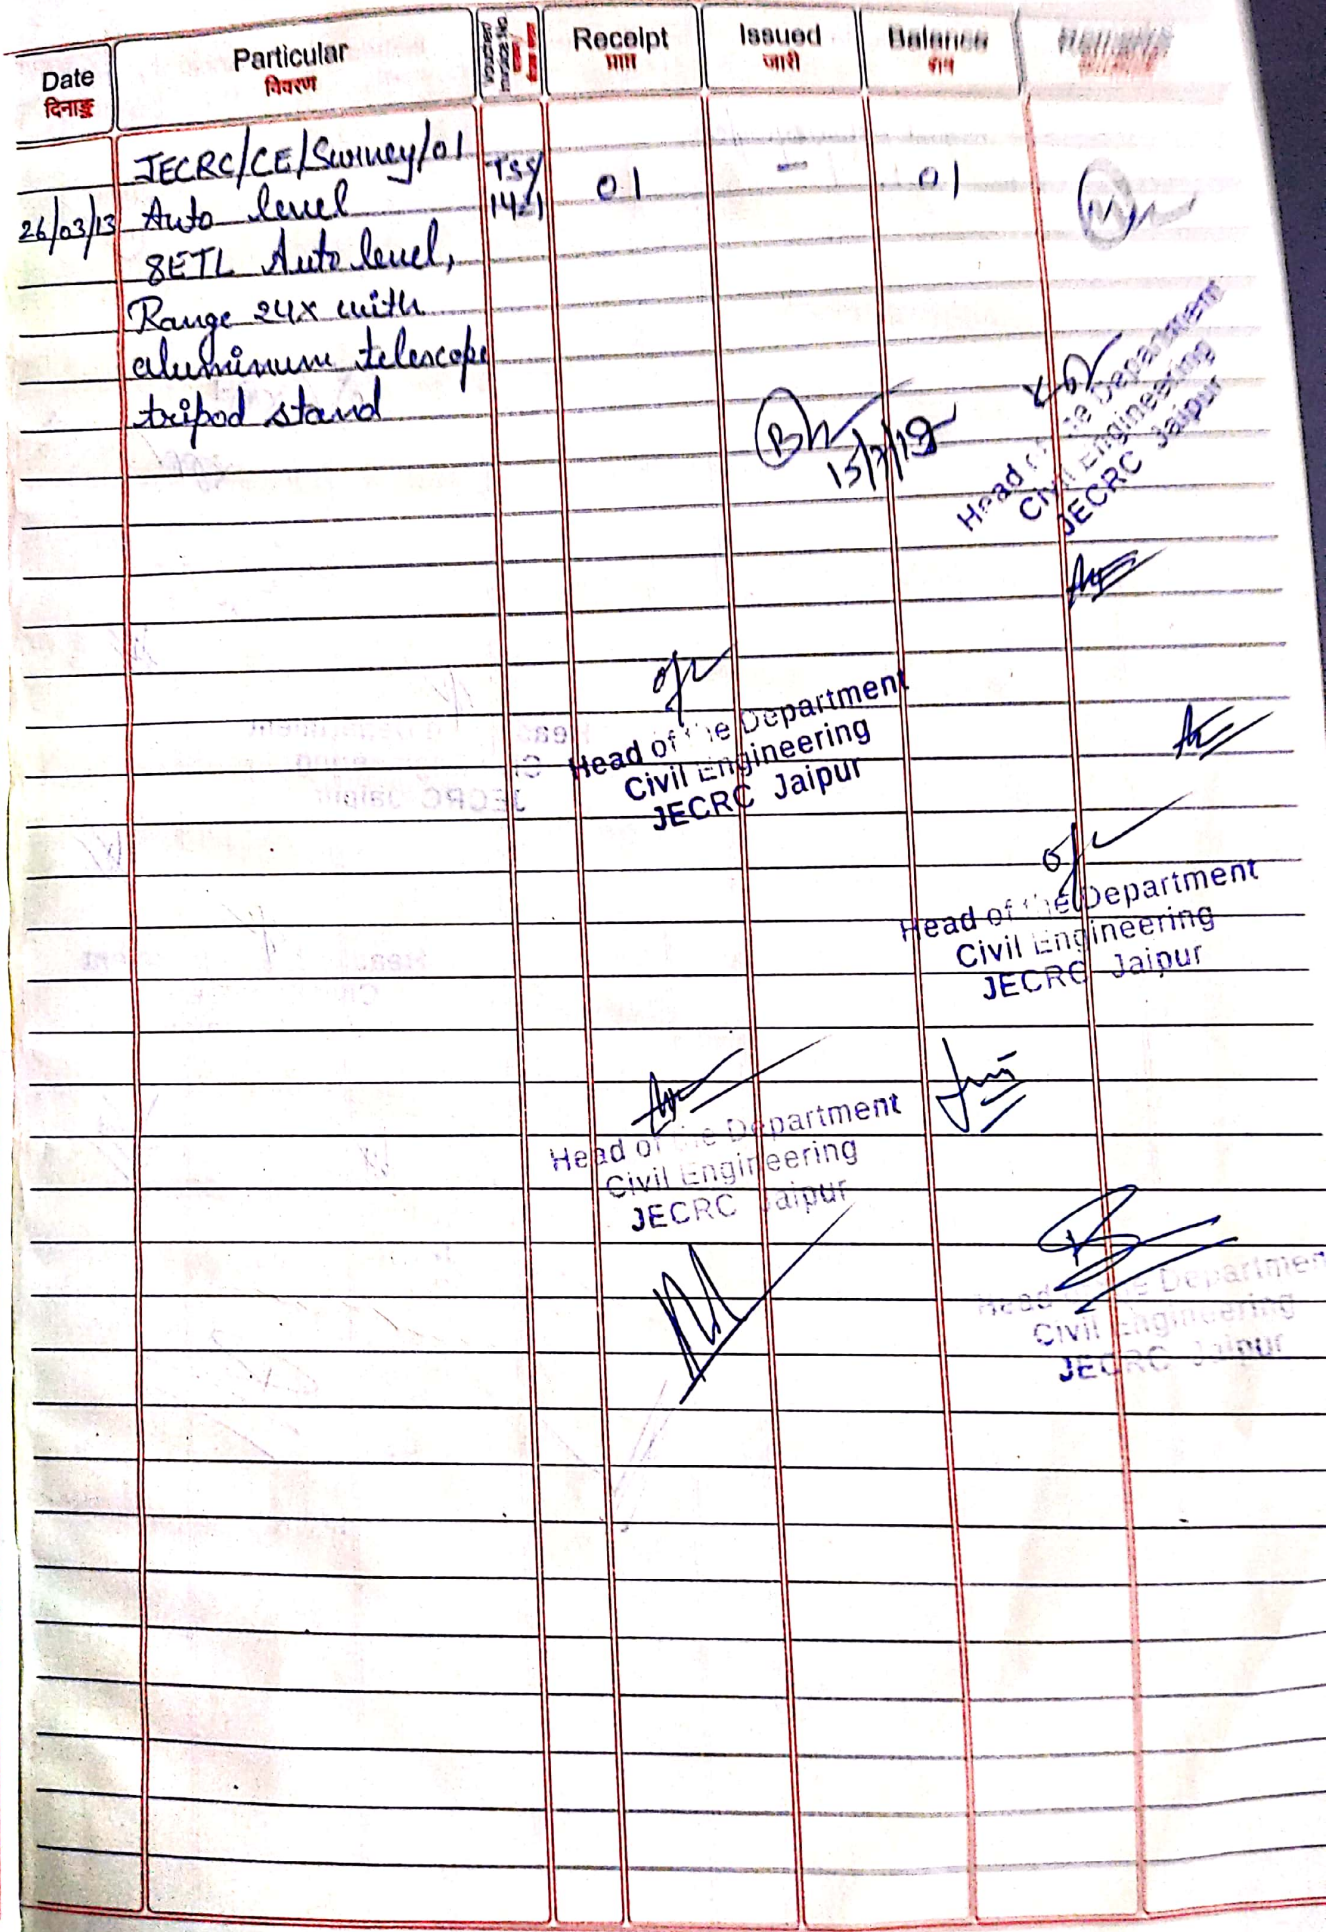 Date
दिनाङ्क
Particular
विवरण
Receipt
प्राप्त
Issued
जारी
Balance
शेष
Remarks
JECRC/CE/Survey/01
26/03/13 Auto level 01 - 01
8ETL Auto level,
Range 24x with
aluminum telescope
tripod stand
15/7/19
Head of the Department
Civil Engineering
JECRC Jaipur
Head of the Department
Civil Engineering
JECRC Jaipur
Head of the Department
Civil Engineering
JECRC Jaipur
Head of the Department
Civil Engineering
JECRC Jaipur
Head of the Department
Civil Engineering
JECRC Jaipur